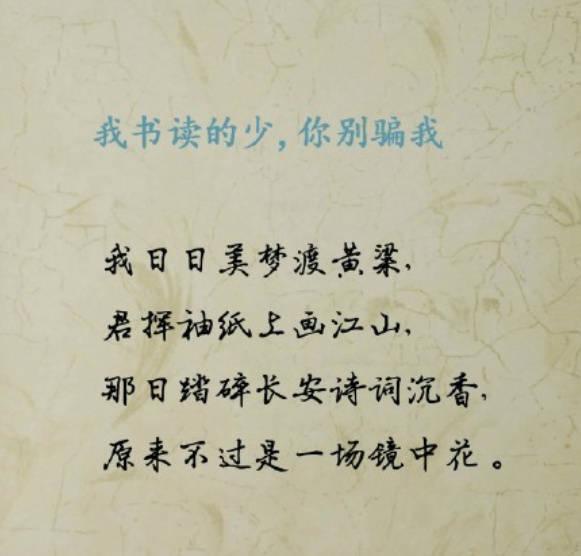 我书读的少,你别骗我
我日日美梦渡黄梁,
君挥袖纸上画江山,
那日踏碎长安诗词沉香,
原来不过是一场镜中花。